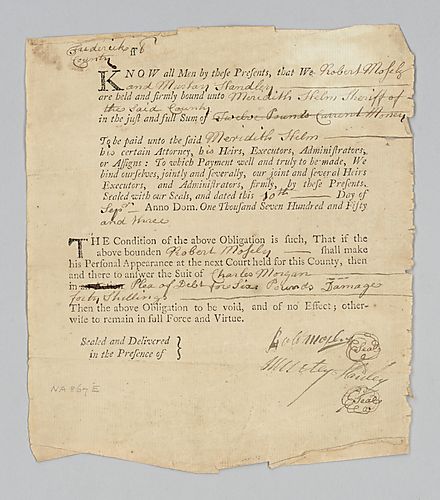 Frederick
County ss
KNOW all Men by these Presents, that We Robert Mosely
and Handley
are held and firmly bound unto Meredith Helm Sheriff of
the Said County
in the just and full Sum of Twelve Pounds Current Money
To be paid unto the said Meredith Helm
his certain Attorney, his Heirs, Executors, Administrators,
or Assigns: To which Payment well and truly to be made, We
bind ourselves, jointly and severally, our joint and several Heirs
Executors, and Administrators, firmly, by these Presents.
Sealed with our Seals, and dated this 10th Day of
Sepr Anno Dom. One Thousand Seven Hundred and Fifty
and three
THE Condition of the above Obligation is such, That if the
above bounden Robert Mosely shall make
his Personal Appearance at the next Court held for this County, then
and there to answer the Suit of Charles Morgan
in Plea of Debt for Six Pounds Damage
forty Shillings
Then the above Obligation to be void, and of no Effect; other-
wise to remain in full Force and Virtue.
Sealed and Delivered
in the Presence of
Rob Mosely Seal
Seal
NA 867 E